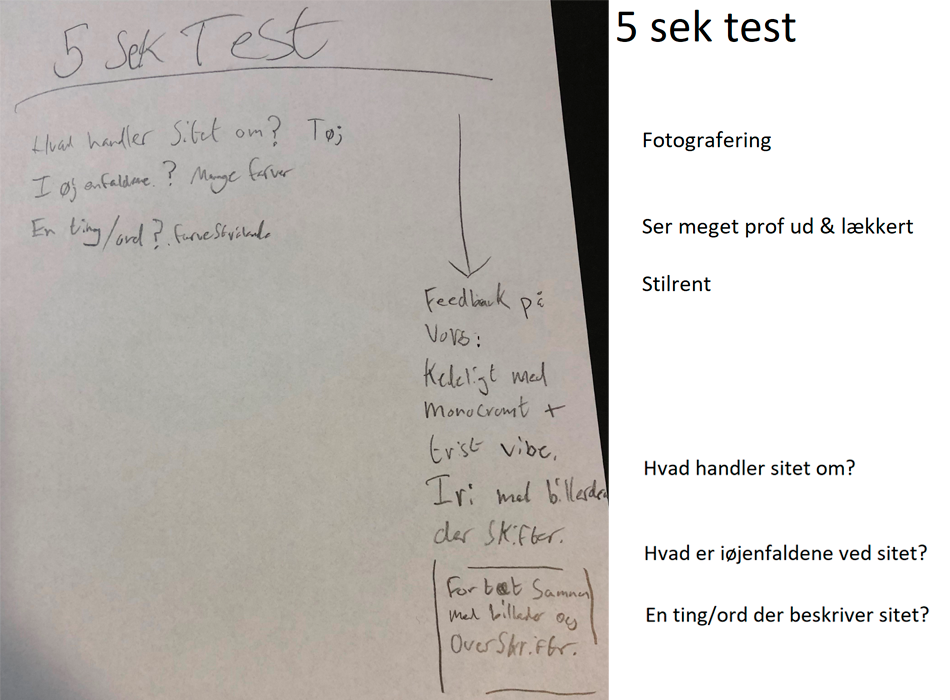 5 sek Test
Hvad handler Sitet om? Tøj
I øj enfaldne.? Mange farver
En ting/ord?
Feedback på
Vors:
Kedeligt med
monocromt +
trist vibe.
med billerder
der skifter.
For tæt Sammen
med billeder og
OverSkrifter.
5 sek test
Fotografering
Ser meget prof ud & lækkert
Stilrent
Hvad handler sitet om?
Hvad er iøjenfaldene ved sitet?
En ting/ord der beskriver sitet?